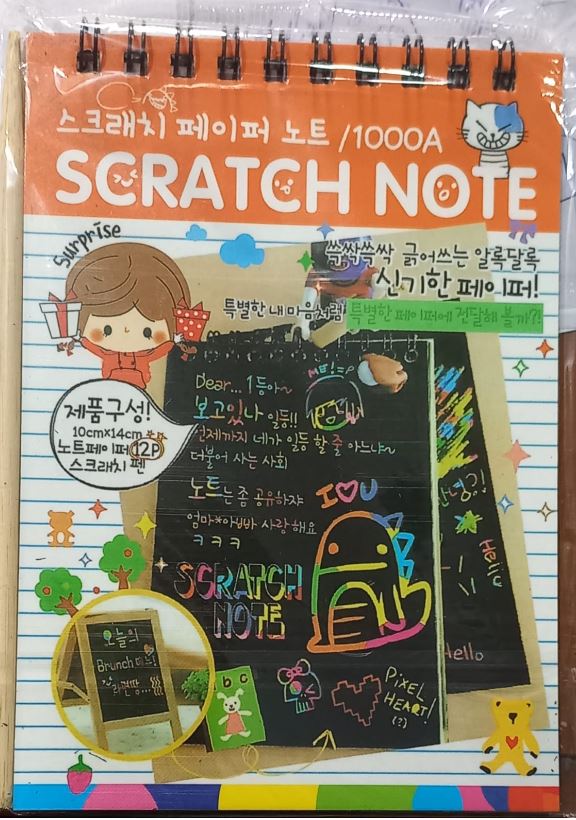 스크래치 페이퍼 노트 /1000A
SCRATCH NOTE
Surprise
쓱싹쓱싹 긁어쓰는 알록달록
신기한 페이퍼!
특별한 내 마음처럼 특별한 페이퍼에 전달해 볼까?!
제품구성!
10cmx14cm
노트페이퍼 12P
스크래치 펜
Dear... 1등아~
보고있나 일등!!
언제까지 네가 일등 할 줄 아느냐~
더불어 사는 사회
노트는 좀 공유하쟈
엄마*아빠 사랑해요
ㅋ ㅋ ㅋ
ME!
I U
안녕?!
Hello
SCRATCH
NOTE
Hello
오늘의
Brunch 메뉴!
라면땅...
b c
PiXEL
HEART!
(?)